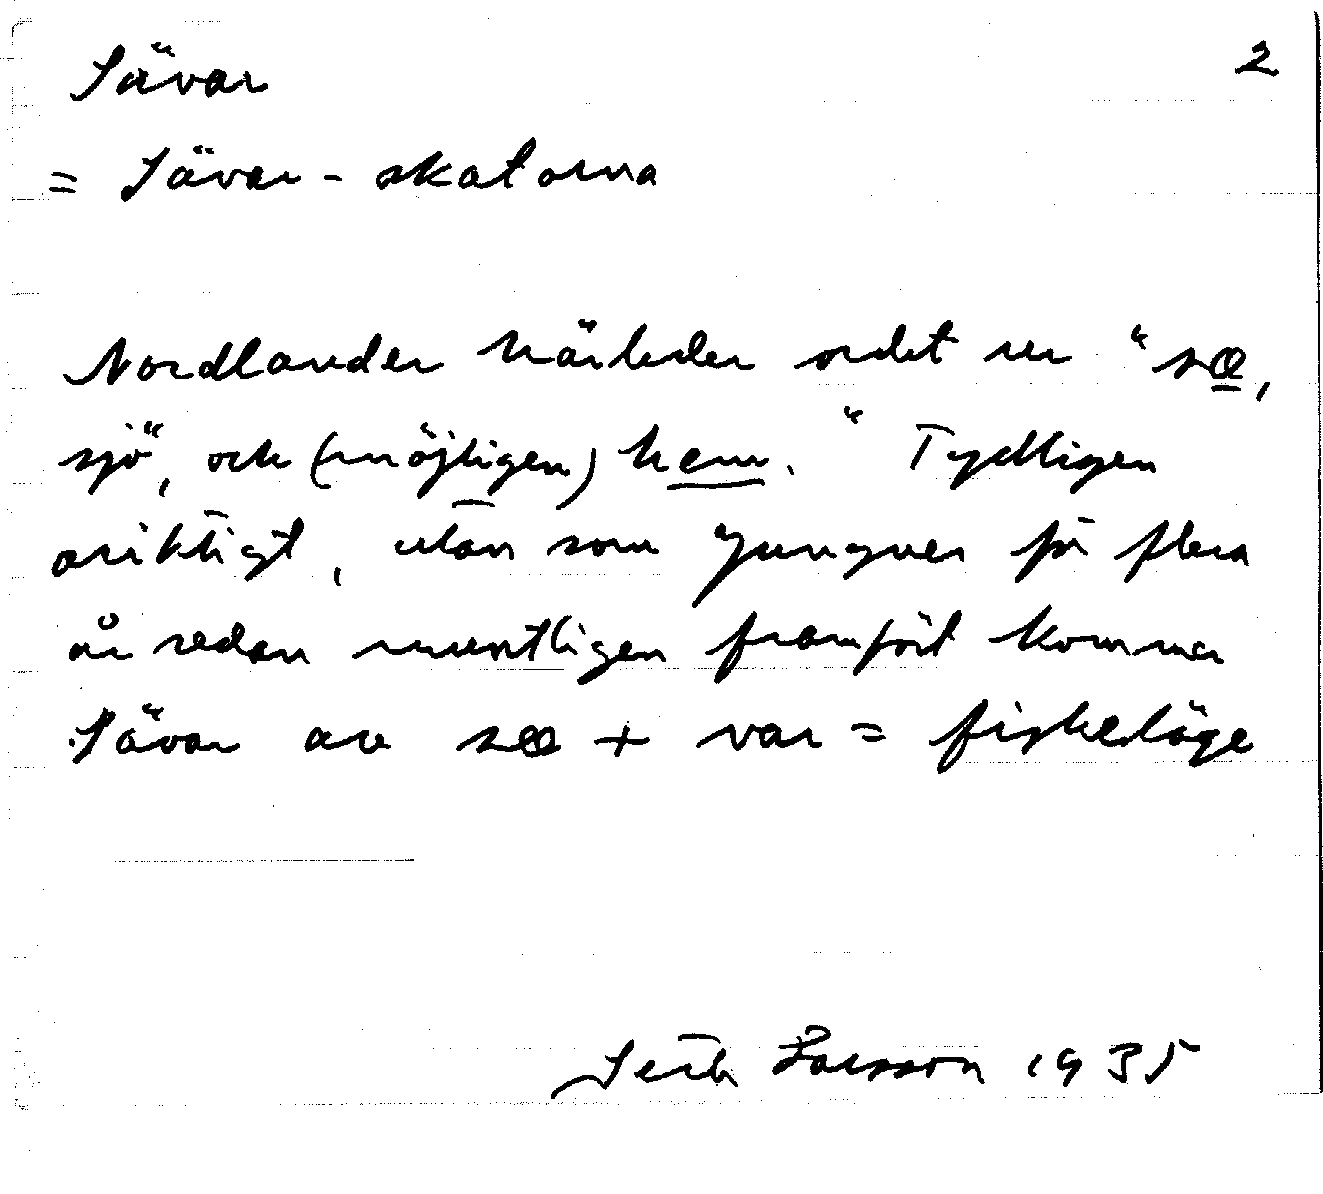 Sävar 2
= Sävar - skatorna
Nordlander härleder ordet ur "sæ,
sjö", och (möjligen) hem." Tydligen
oriktigt, utan som ygunguer för flera
år sedan muntligen framfört komma
Sävar av sæ + var = fiskeläge
Seth Larsson 1935